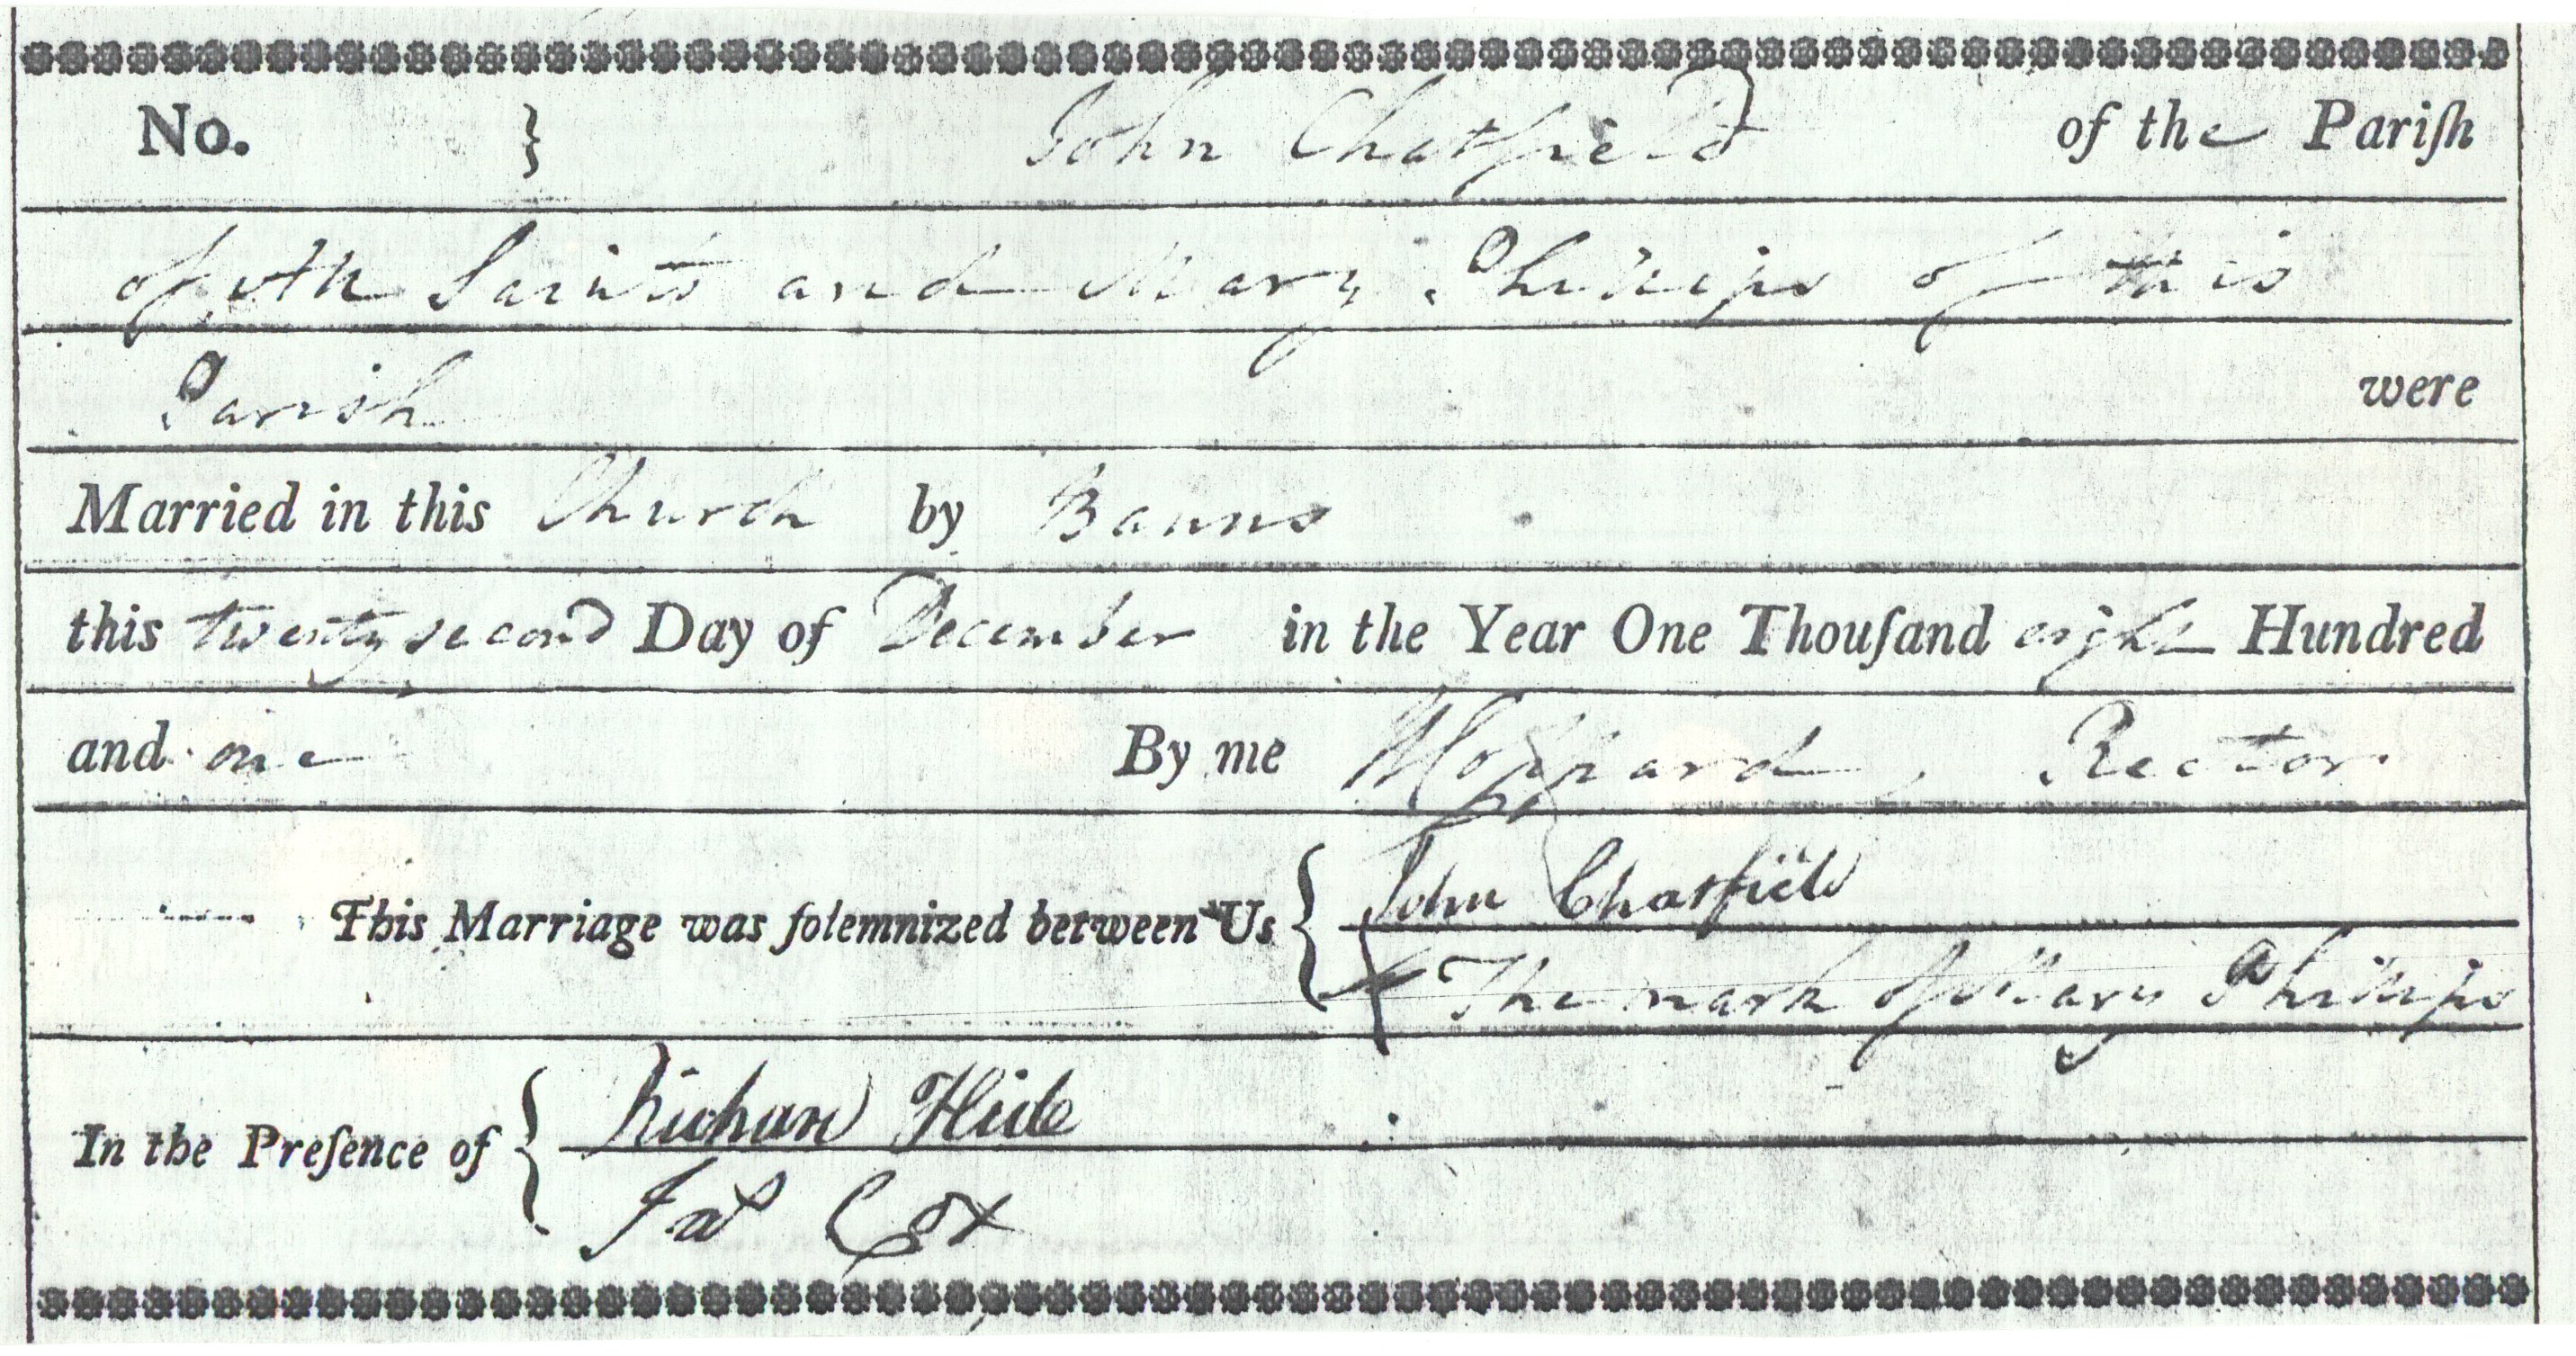 No. } John Chatfield of the Pariſh
of All Saints and Mary Phillips of this
Parish were
Married in this Church by Banns
this twenty second Day of December in the Year One Thouſand eight Hundred
and one By me Rector
This Marriage was ſolemnized between Us { John Chatfield
The mark of Mary Phillips
In the Preſence of { Richard Hide
Jas Cox